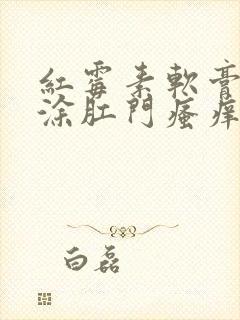 紅霉素軟膏
涂肛門瘙痒
白磊